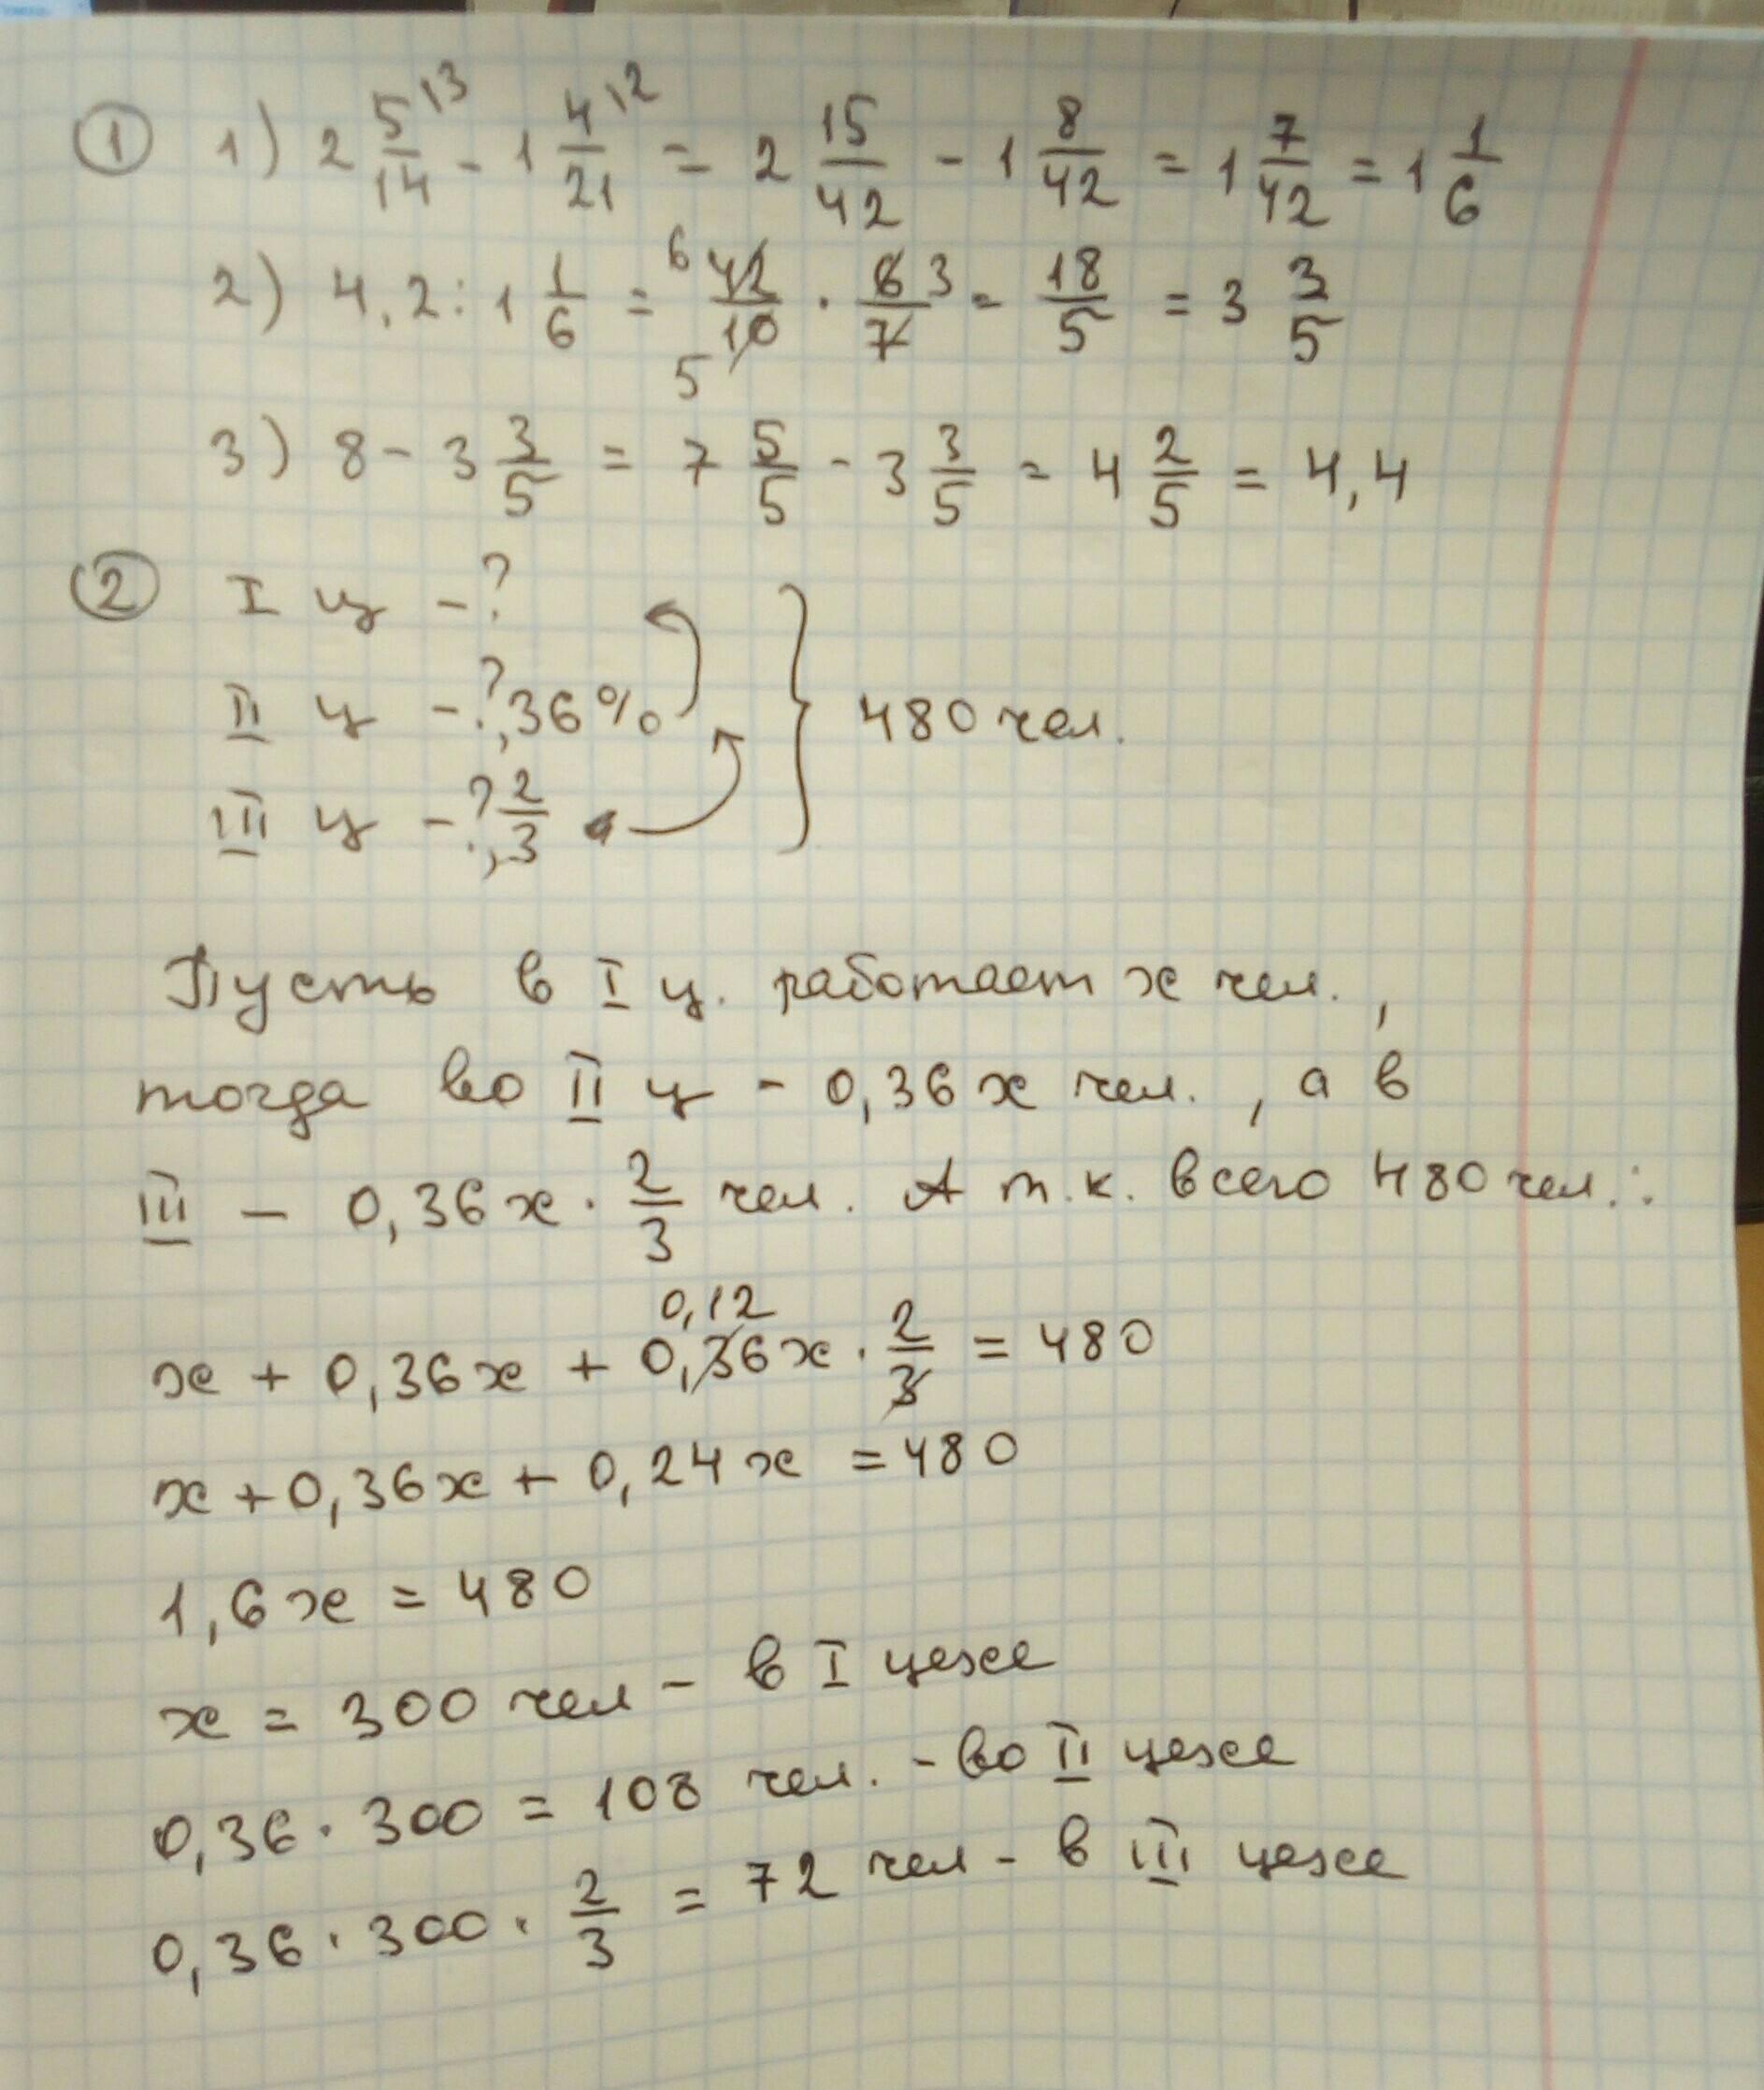 ① 1) 2 5/14 \3 - 1 4/21 \2 = 2 15/42 - 1 8/42 = 1 7/42 = 1 1/6
2) 4,2 : 1 1/6 = 6 42/10 5 · 6/7 3 = 18/5 = 3 3/5
3) 8 - 3 3/5 = 7 5/5 - 3 3/5 = 4 2/5 = 4,4
② I ц - ?
II ц - ?, 36%
480 чел.
III ц - ?, 2/3
Пусть в I ц. работает x чел.,
тогда во II ц - 0,36x чел., а в
III - 0,36x · 2/3 чел. А т.к. всего 480 чел.:
0,12
x + 0,36x + 0,36x · 2/3 = 480
x + 0,36x + 0,24x = 480
1,6x = 480
x = 300 чел - в I цехе
0,36 · 300 = 108 чел. - во II цехе
0,36 · 300 · 2/3 = 72 чел - в III цехе